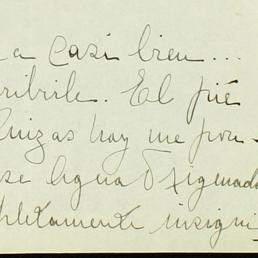 a casi bien...
ribirle. El pié
uizas hay me pon-
se Agua Oxigenada
pletamente insigni